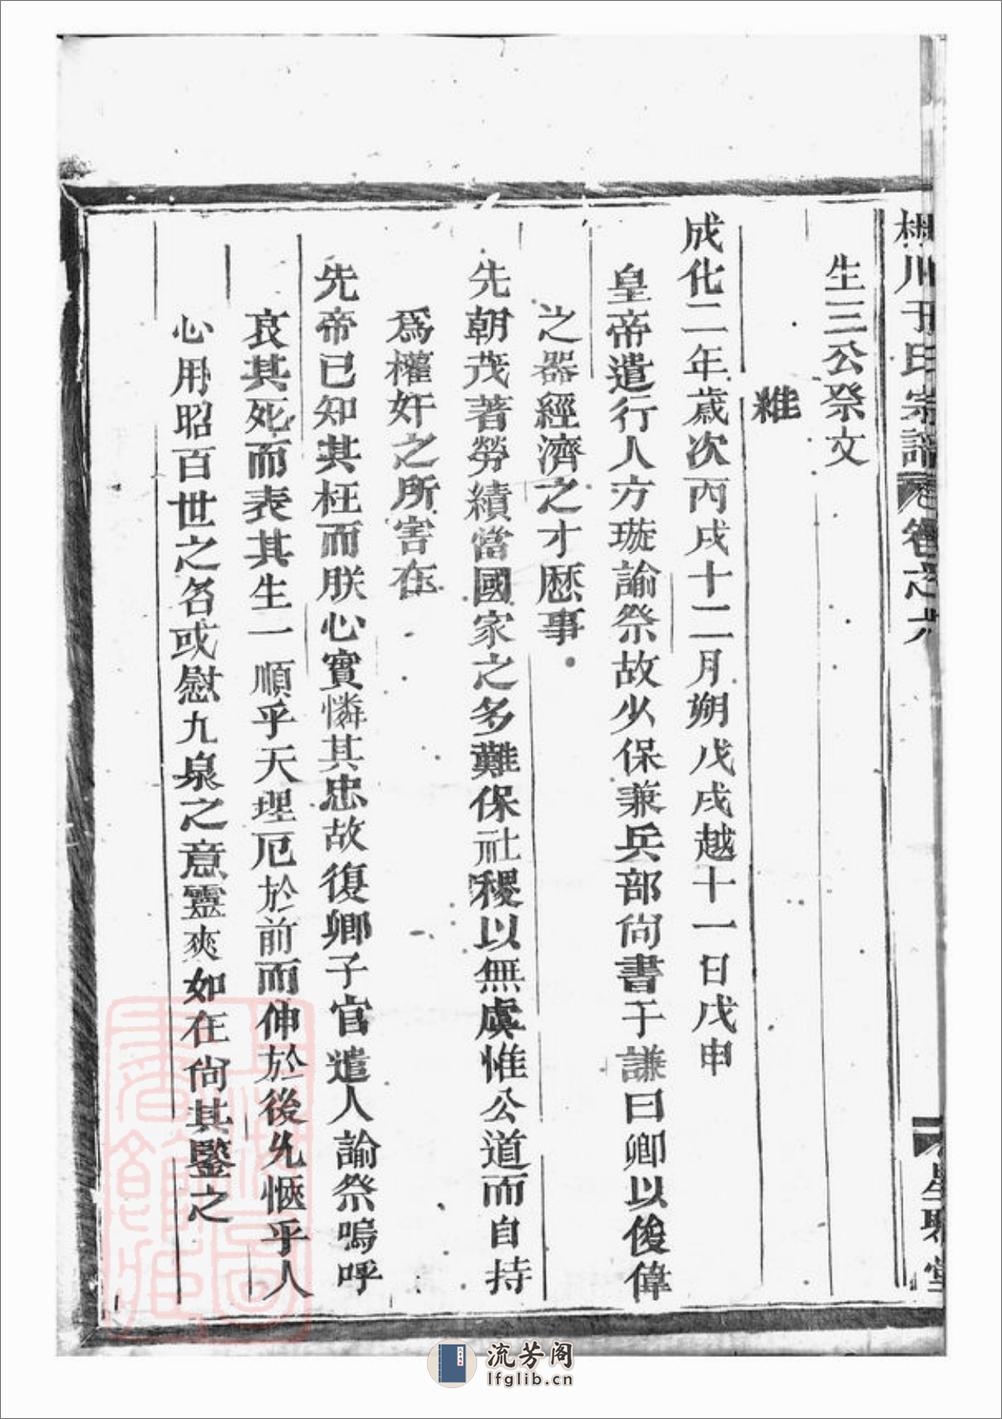 川于氏宗譜卷之六
生三公祭文
維
成化二年歲次丙戌十二月朔戊戌越十一日戊申
皇帝遣行人方璇諭祭故少保兼兵部尙書于謙曰卿以俊偉
之器經濟之才歷事
先朝茂著勞績當國家之多難保社稷以無虞惟公道而自持
爲權奸之所害在
先帝已知其枉而朕心實憐其忠故復卿子官遣人諭祭嗚呼
哀其死而表其生一順乎天理厄於前而伸於後允愜乎人
心用昭百世之名或慰九泉之意靈爽如在尙其鑒之
流芳阁
lfglib.cn